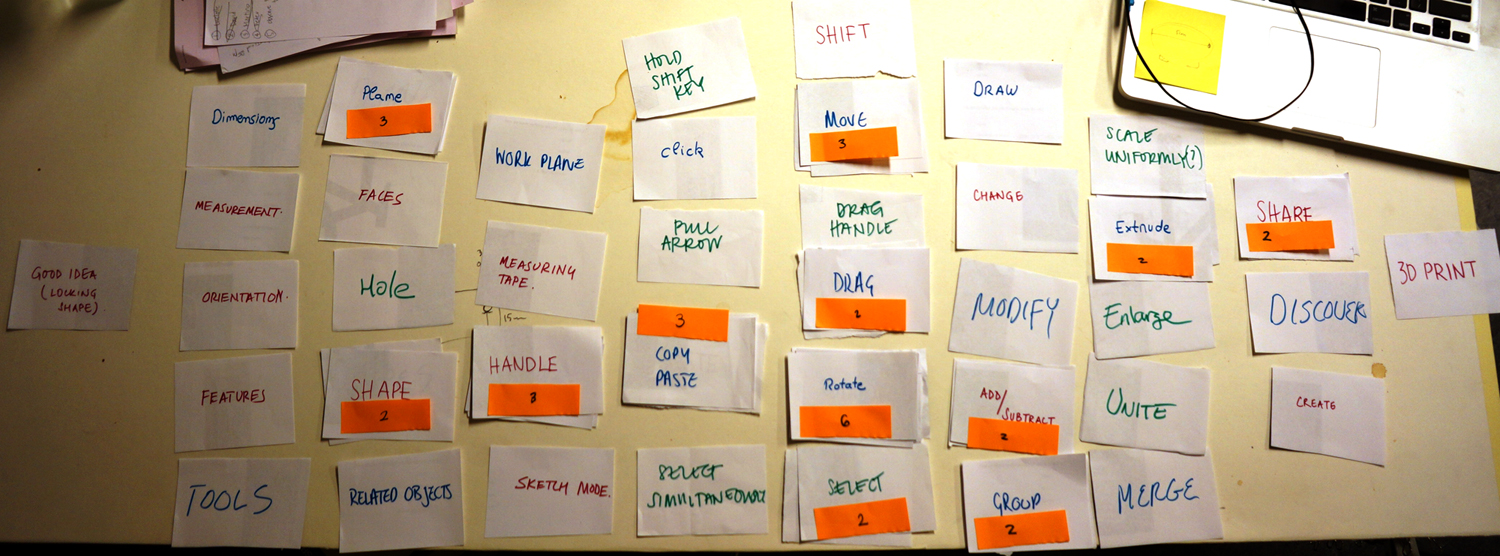 GOOD IDEA
(LOCKING
SHAPE)
Dimensions
MEASUREMENT.
ORIENTATION.
FEATURES
TOOLS
Plane
3
FACES
Hole
SHAPE
2
RELATED OBJECTS
WORK PLANE
MEASURING
TAPE.
HANDLE
3
SKETCH MODE.
HOLD
SHIFT
KEY
click
PULL
ARROW
3
COPY
PASTE
SELECT
SIMULTANEOUSLY
SHIFT
MOVE
3
DRAG
HANDLE
DRAG
2
Rotate
6
SELECT
2
DRAW
CHANGE
MODIFY
ADD/
SUBTRACT
2
GROUP
2
SCALE
UNIFORMLY(?)
Extrude
2
Enlarge
UNITE
MERGE
SHARE
2
DISCOVER
CREATE
3D PRINT